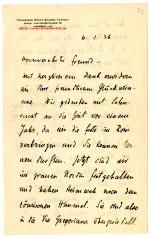 6.1.36
verehrter Freund –
mit herzlichem Dank erwidern
wir Ihre freundlichen Glückwün-
sche. Wir gedenken mit Sehn-
sucht an die Zeit vor einem
Jahr, da wir die Feste in Rom
verbringen und Sie kennen ler-
nen durften. Jetzt sind wir
im grauen Norden festgehalten
und haben Heimweh nach dem
römischen Himmel. Sie sind also
in die Via Gregoriana übergesiedelt.